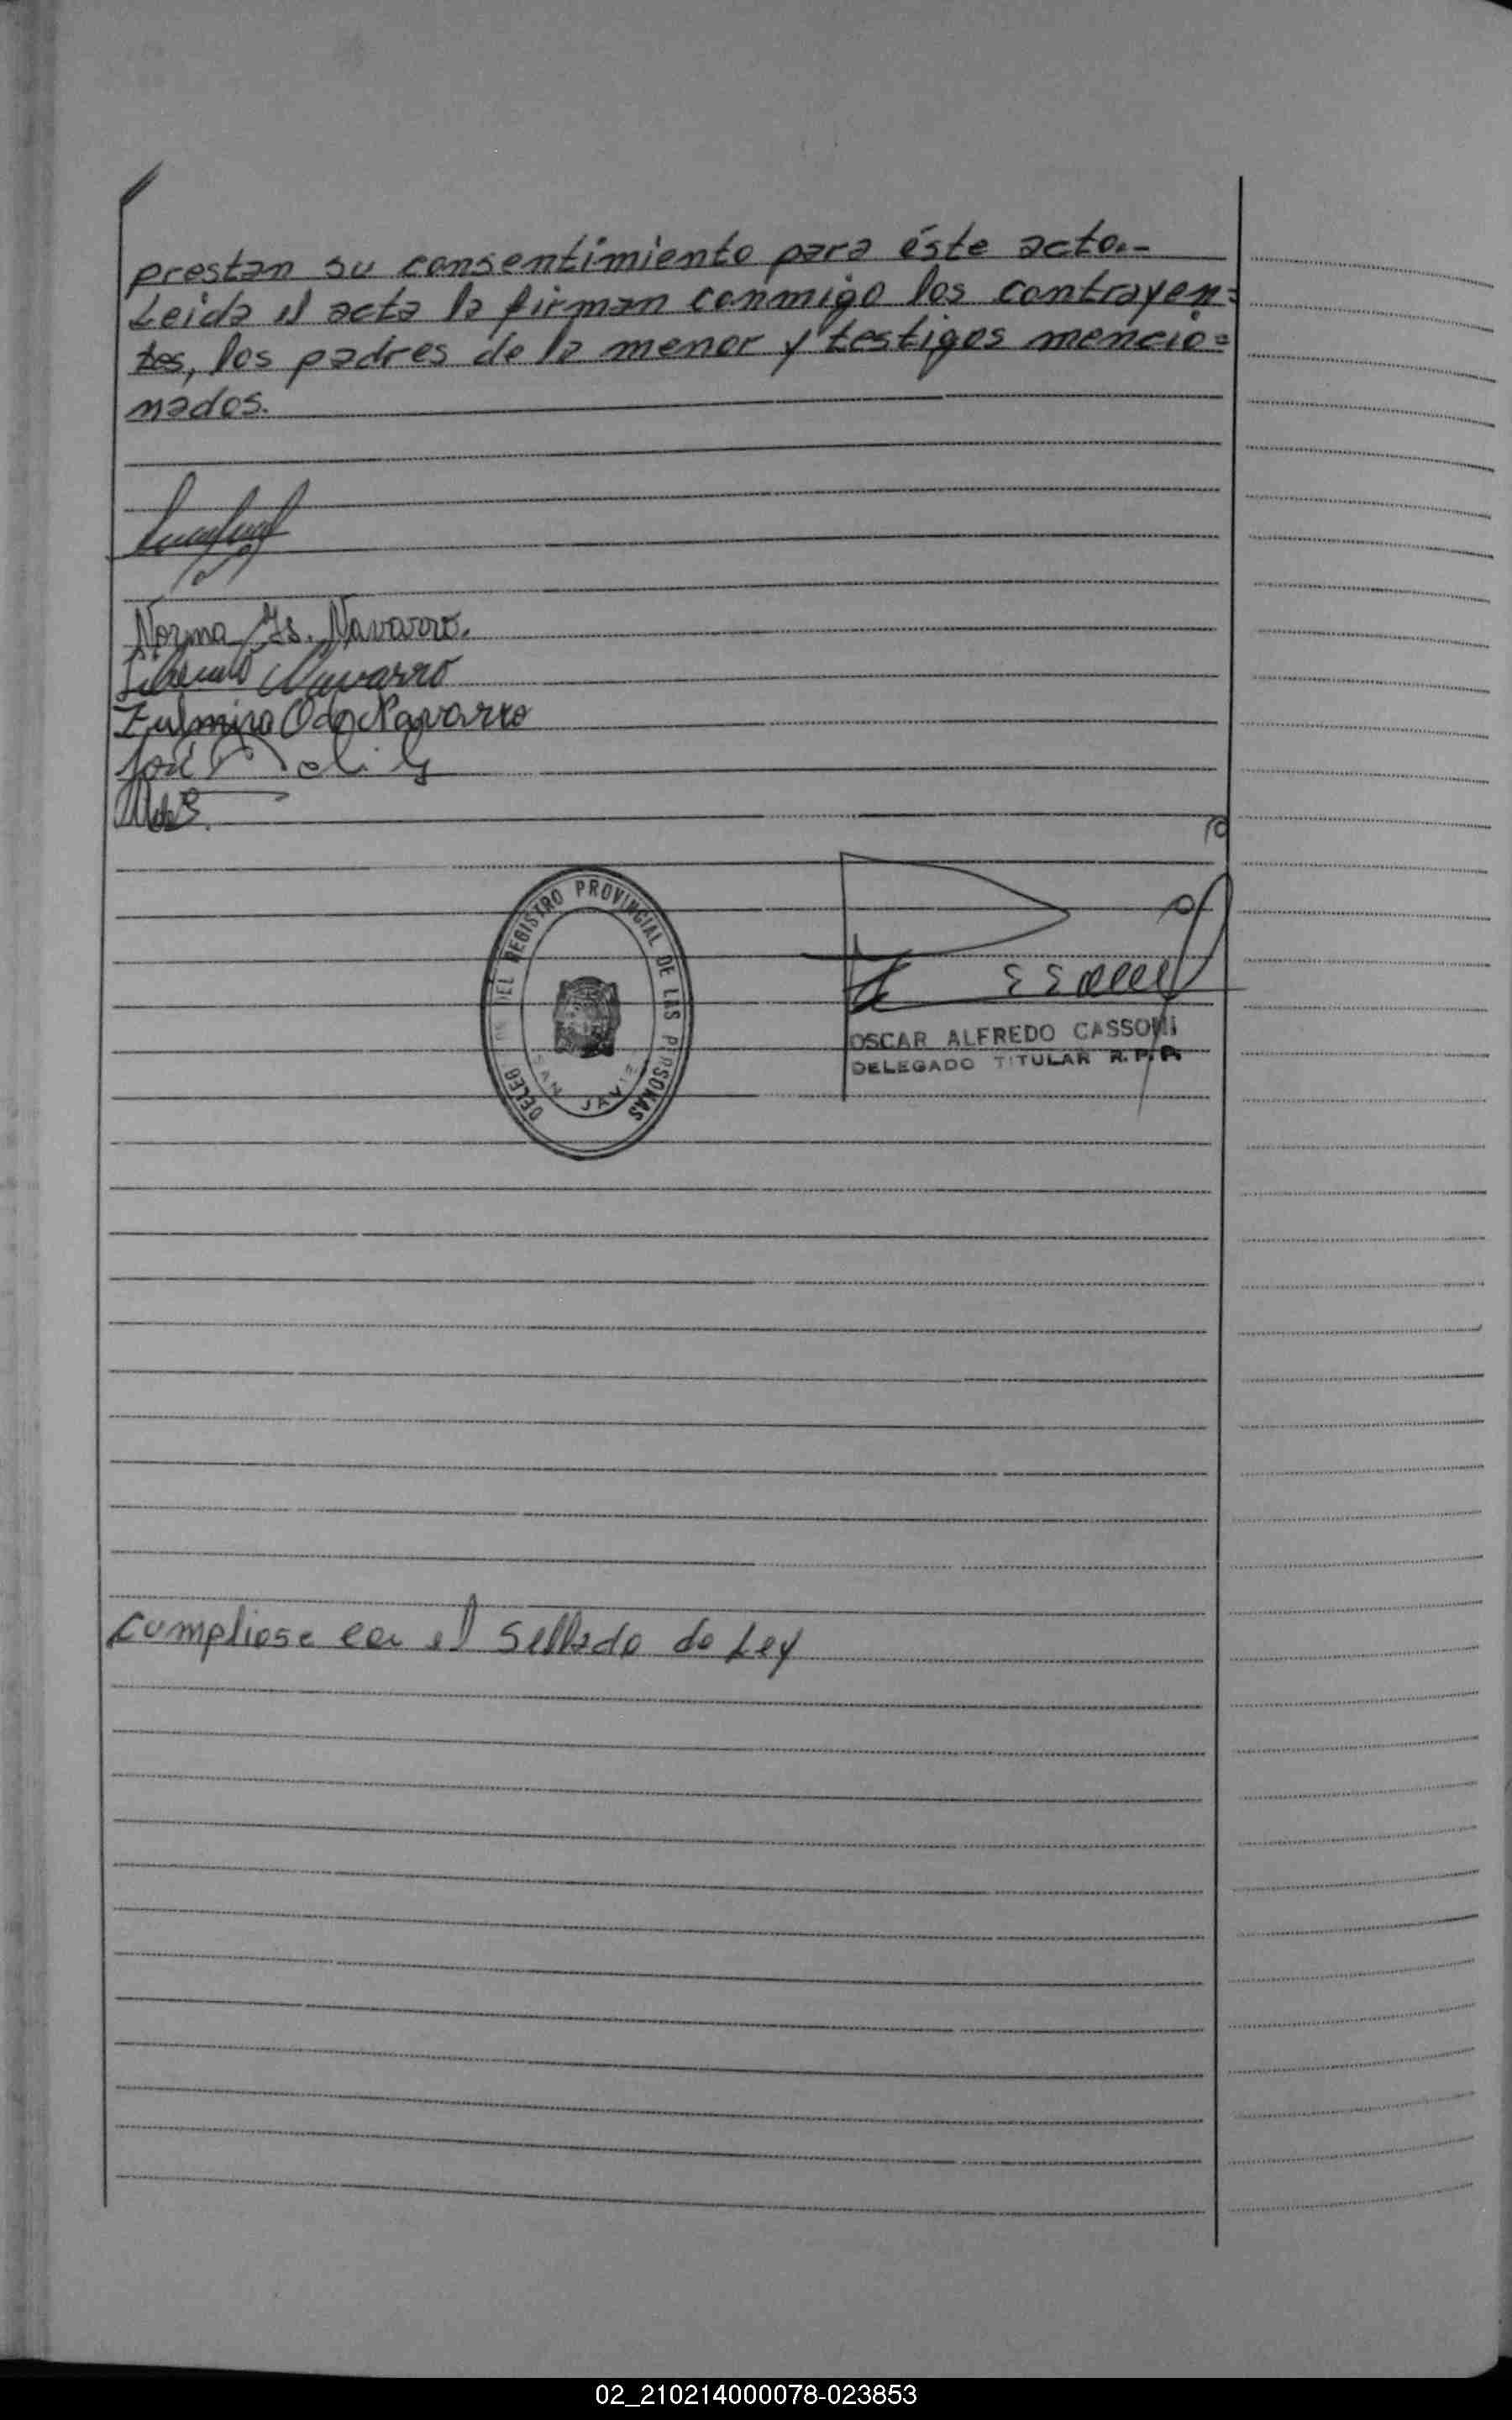 prestan su consentimiento para éste acto.-
Leida el acta la firman conmigo los contrayen=
tes, los padres de la menor y testigos mencio=
nados.
Norma Is. Navarro.
Navarro
Zulmira Oda Navarro
José
DELEG DEL REGISTRO PROVINCIAL DE LAS PERSONAS
SAN JAVIE
OSCAR ALFREDO CASSONI
DELEGADO TITULAR R.P.P.
Cumpliose con el Sellado de Ley
02_210214000078-023853